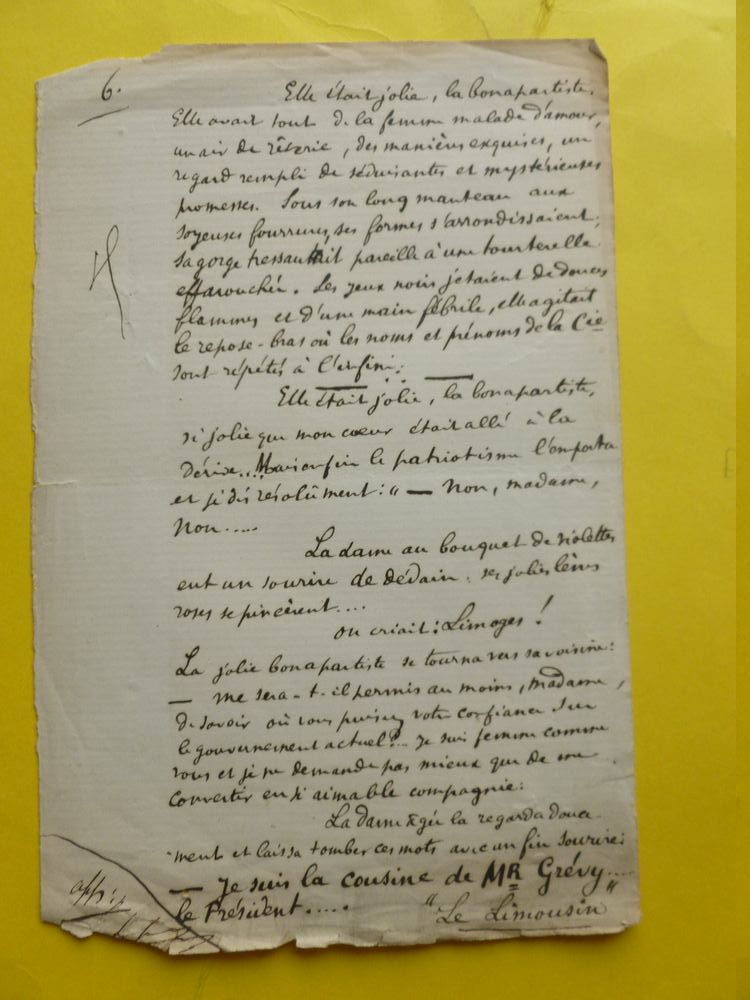 6.
Elle était jolie, la bonapartiste.
Elle avait tout de la femme malade d'amour,
un air de rêverie, des manières exquises, un
regard rempli de séduisantes et mystérieuses
promesses. Sous son long manteau aux
soyeuses fourrures, ses formes s'arrondissaient;
sa gorge tressautait pareille à une tourterelle
effarouchée. Les yeux noirs jetaient de douces
flammes et d'une main fébrile, elle agitait
le repose-bras où les noms et prénoms de la Cie
sont répétés à l'infini:
Elle était jolie, la bonapartiste,
si jolie que mon cœur était allé à la
dérive... Mais enfin le patriotisme l'emporta
et je dis résolûment: " — Non, madame,
Non.....
La dame au bouquet de violettes
eut un sourire de dédain: ses jolies lèvres
roses se pincèrent....
On criait: Limoges!
La jolie bonapartiste se tourna vers sa voisine:
— me sera-t-il permis au moins, madame,
de savoir où vous puisez votre confiance dans
le gouvernement actuel?.. Je suis femme comme
vous et je ne demande pas mieux que de me
convertir en si aimable compagnie.
La dame âgée la regarda douce-
ment et laissa tomber ces mots avec un fin sourire:
— Je suis la cousine de MR Grévy....
le Président.....
"Le Limousin"